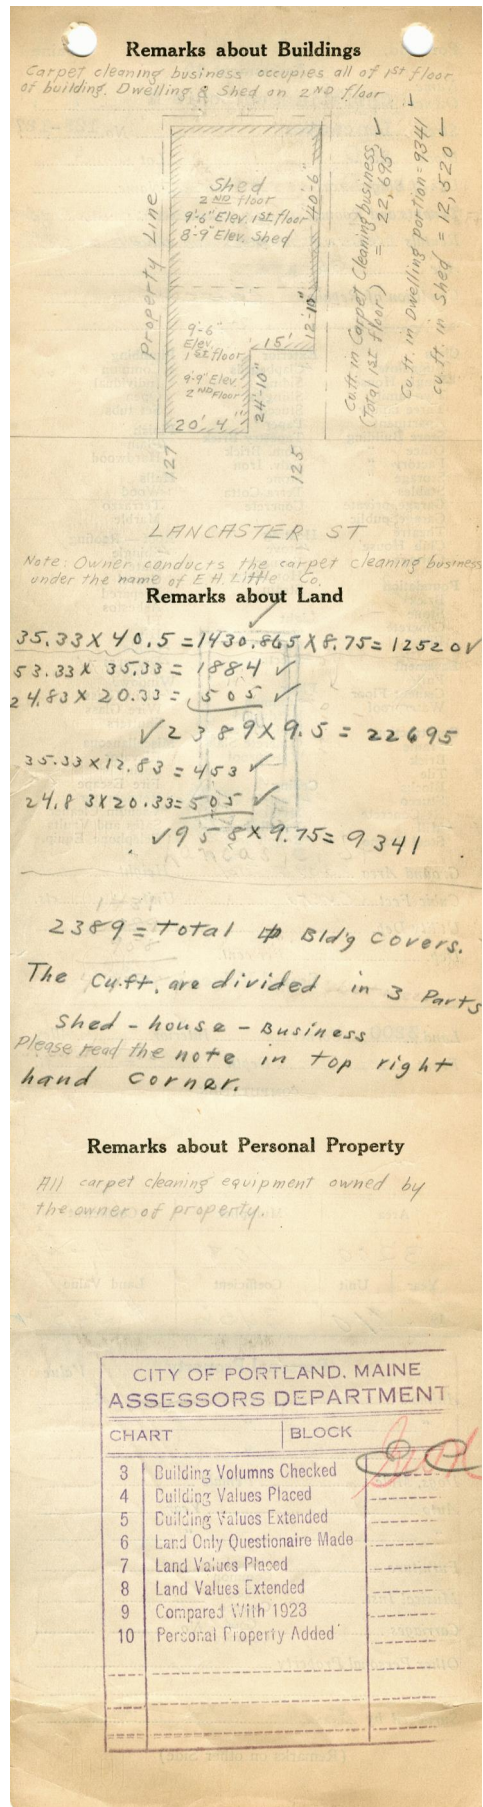 Remarks about Buildings
Carpet cleaning business occupies all of 1st floor
of building. Dwelling & Shed on 2ND floor
Property Line
Shed
2ND floor
9'-6" Elev. 1st floor
8'-9" Elev. Shed
40'-6"
12'-10"
15'
9'-6"
Elev.
1st floor
9'-9" Elev.
2ND Floor
24'-10"
20' 4"
Cu.ft. in Carpet Cleaning business,
(Total 1st floor) = 22,695 ✓
Cu.ft. in Dwelling portion = 9341 ✓
cu.ft. in Shed = 12,520 ✓
127
125
LANCASTER ST
Note: Owner conducts the carpet cleaning business
under the name of E.H. Little Co.
Remarks about Land
35.33 X 40.5 = 1430.865 X 8.75 = 12520 ✓
53.33 X 35.33 = 1884 ✓
24.83 X 20.33 = 505 ✓
✓ 2389 X 9.5 = 22695
35.33 X 12.83 = 453 ✓
24.83 X 20.33 = 505 ✓
✓ 958 X 9.75 = 9341
2389 = total Bld'g covers.
The Cu.ft. are divided in 3 Parts
Shed - house - Business
Please read the note in top right
hand corner.
Remarks about Personal Property
All carpet cleaning equipment owned by
the owner of property.
CITY OF PORTLAND, MAINE
ASSESSORS DEPARTMENT
CHART BLOCK
3 Building Volumns Checked
4 Building Values Placed
5 Building Values Extended
6 Land Only Questionaire Made
7 Land Values Placed
8 Land Values Extended
9 Compared With 1923
10 Personal Property Added